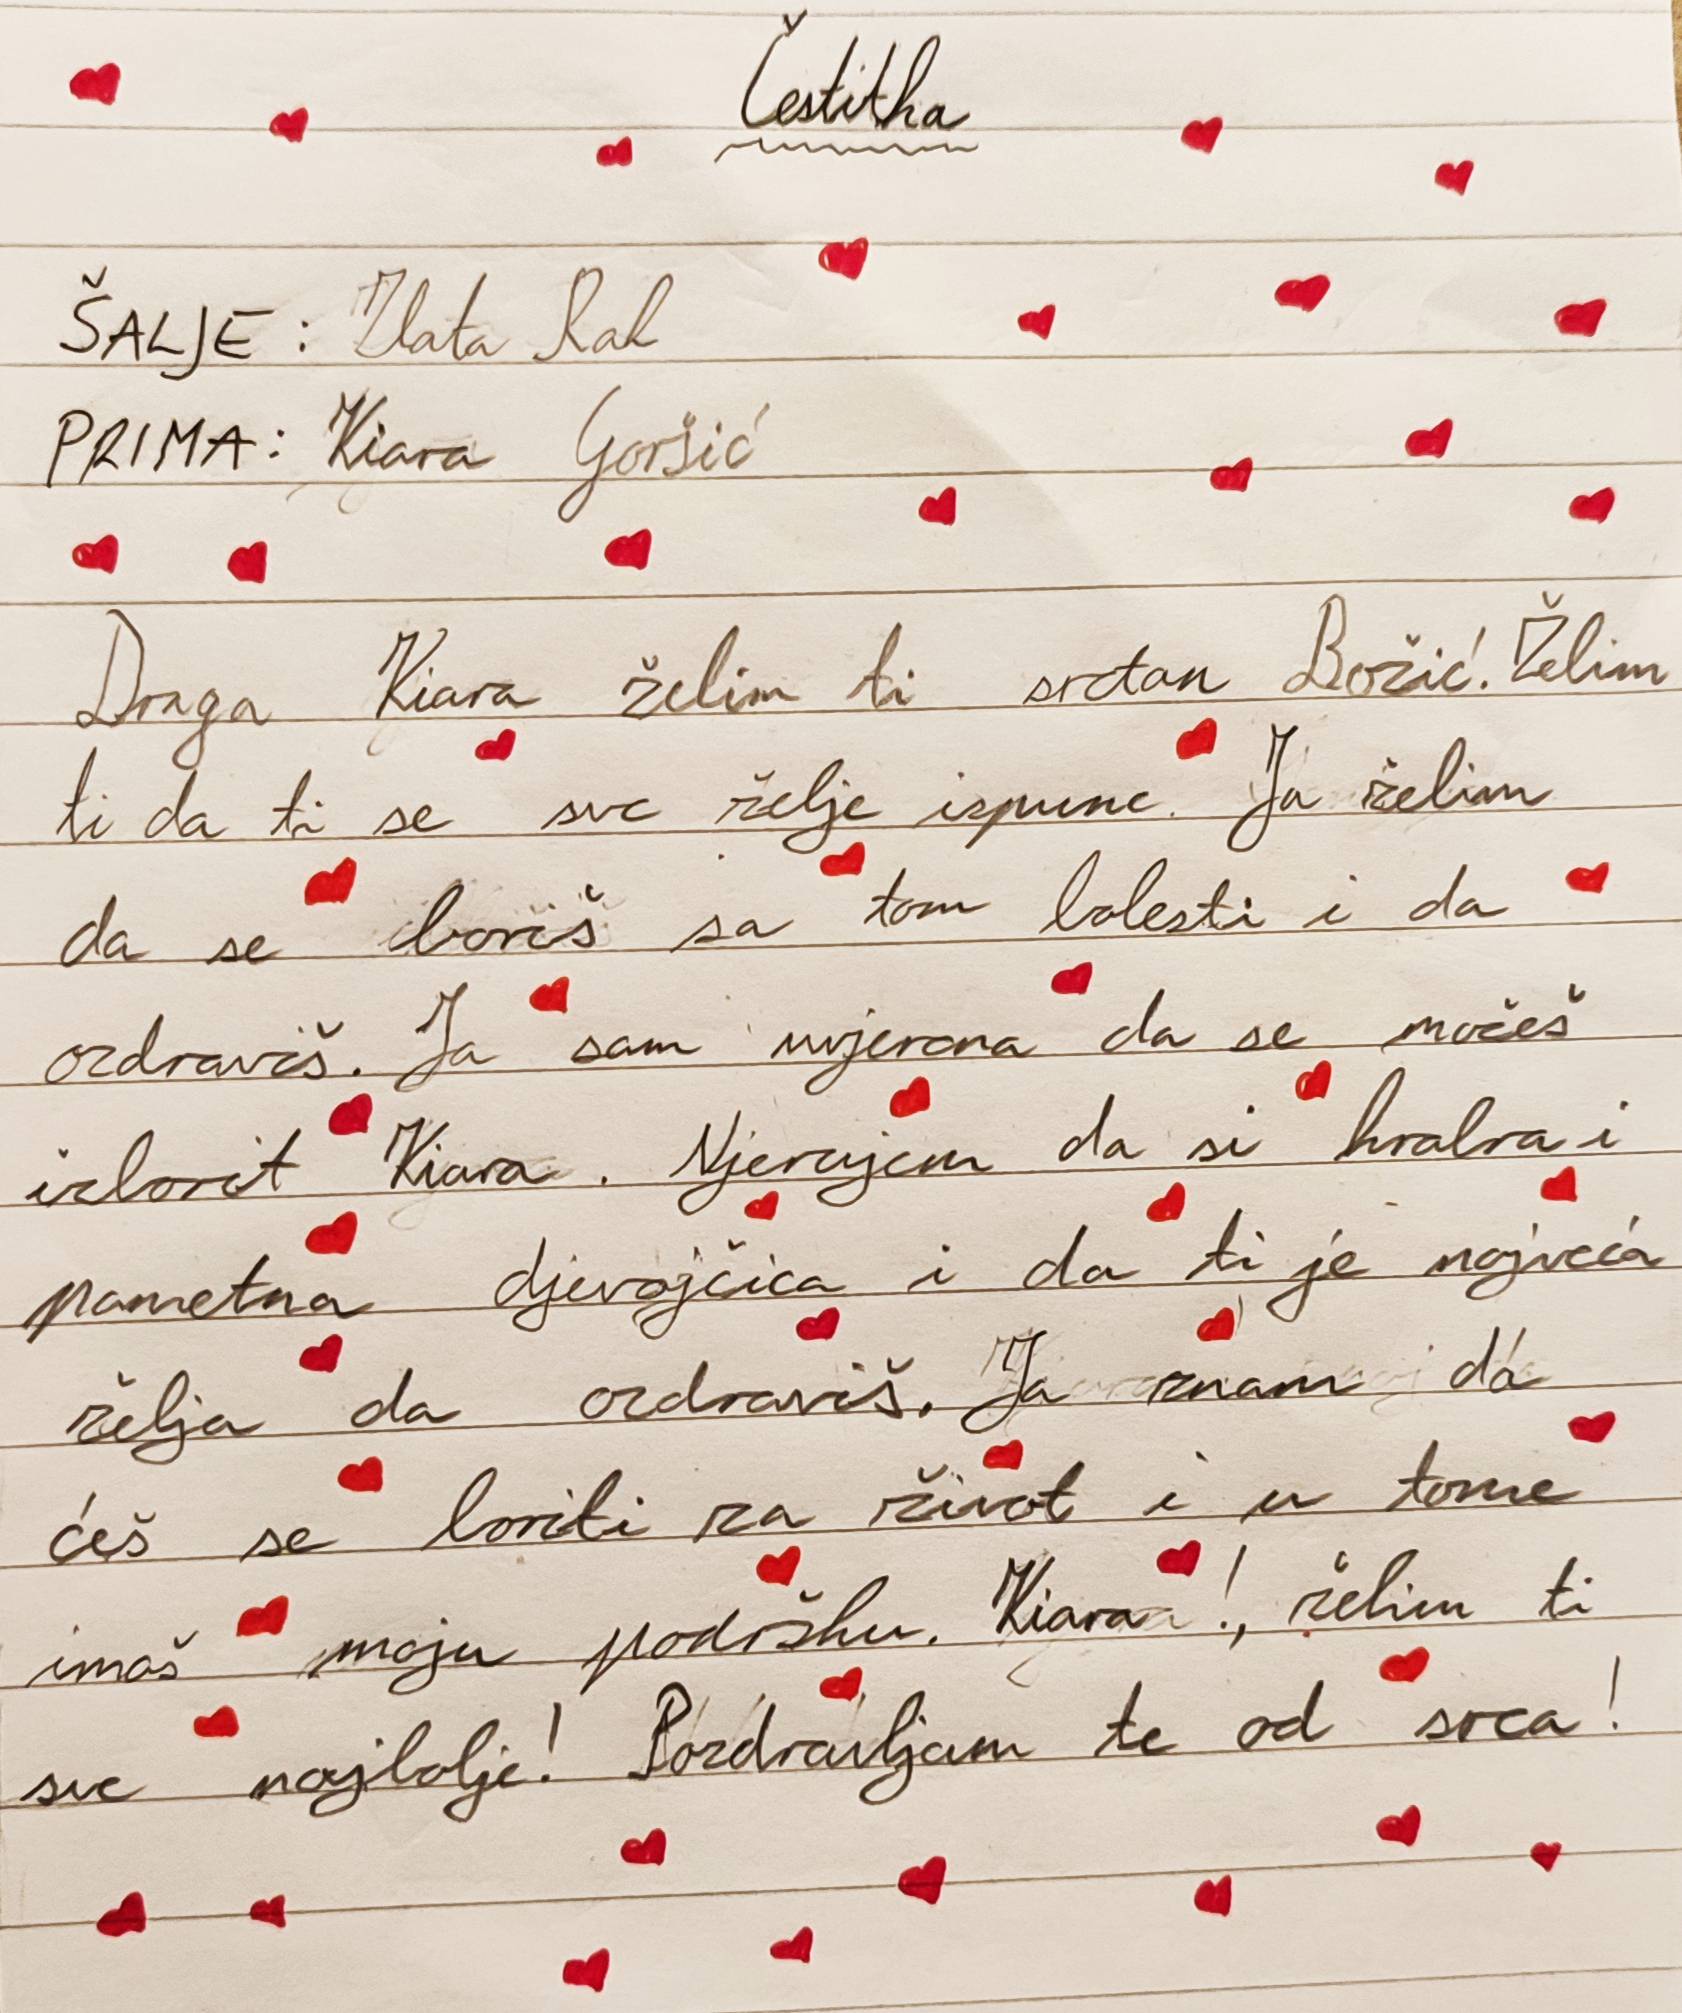 Čestitka
ŠALJE: Zlata Rak
PRIMA: Kiara Goršić
Draga Kiara želim ti sretan Božić. Želim
ti da ti se sve želje ispune. Ja želim
da se boriš sa tom bolesti i da
ozdraviš. Ja sam uvjerena da se možeš
izborit Kiara. Vjerujem da si hrabra i
pametna djevojčica i da ti je najveća
želja da ozdraviš. Ja znam da
ćeš se boriti za život i u tome
imaš moju podršku. Kiara!, želim ti
sve najbolje! Pozdravljam te od srca!